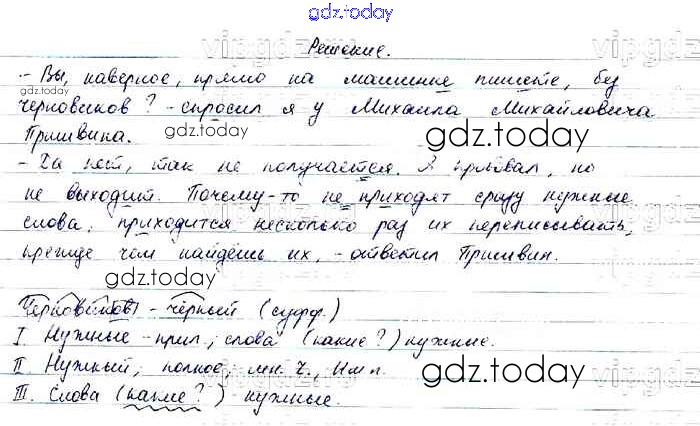 gdz.today
Решение.
- Вы, наверное, прямо на машинке пишете, без
черновиков? - спросил я у Михаила Михайловича
Пришвина.
- Да нет, так не получается. Я пробовал, но
не выходит. Почему-то не приходят сразу нужные
слова, приходится несколько раз их переписывать,
прежде чем найдёшь их, - ответил Пришвин.
Черновиков - чёрный (суфф.)
I. Нужные - прил., слова (какие?) нужные.
II. Нужный, полное, мн. ч., Им п.
III. Слова (какие?) нужные.
gdz.today
gdz.today
gdz.today
gdz.today
gdz.today
gdz.today